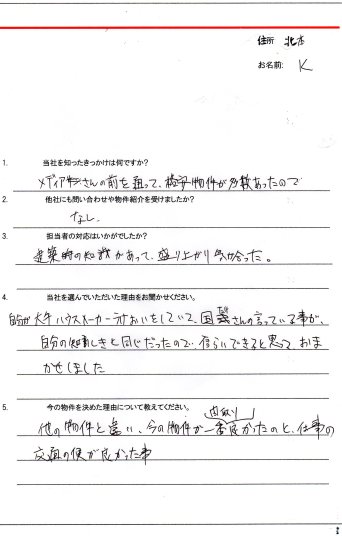 住所 北本
お名前: K
1. 当社を知ったきっかけは何ですか?
メディア さんの前を通って、格安物件が多数あったので
2. 他社にも問い合わせや物件紹介を受けましたか?
なし。
3. 担当者の対応はいかがでしたか?
建築的の知識があって、盛り上がり 合った。
4. 当社を選んでいただいた理由をお聞かせください。
自分が大手ハウスメーカーうけおいをしていて、国 さんの言っている事が、
自分の知しきと同じだったので、信らいできると思って、おま
かせしました
5. 今の物件を決めた理由について教えてください。
間取り
他の物件と違い、今の物件が一番良かったのと、仕事の
交通の便が良かった事